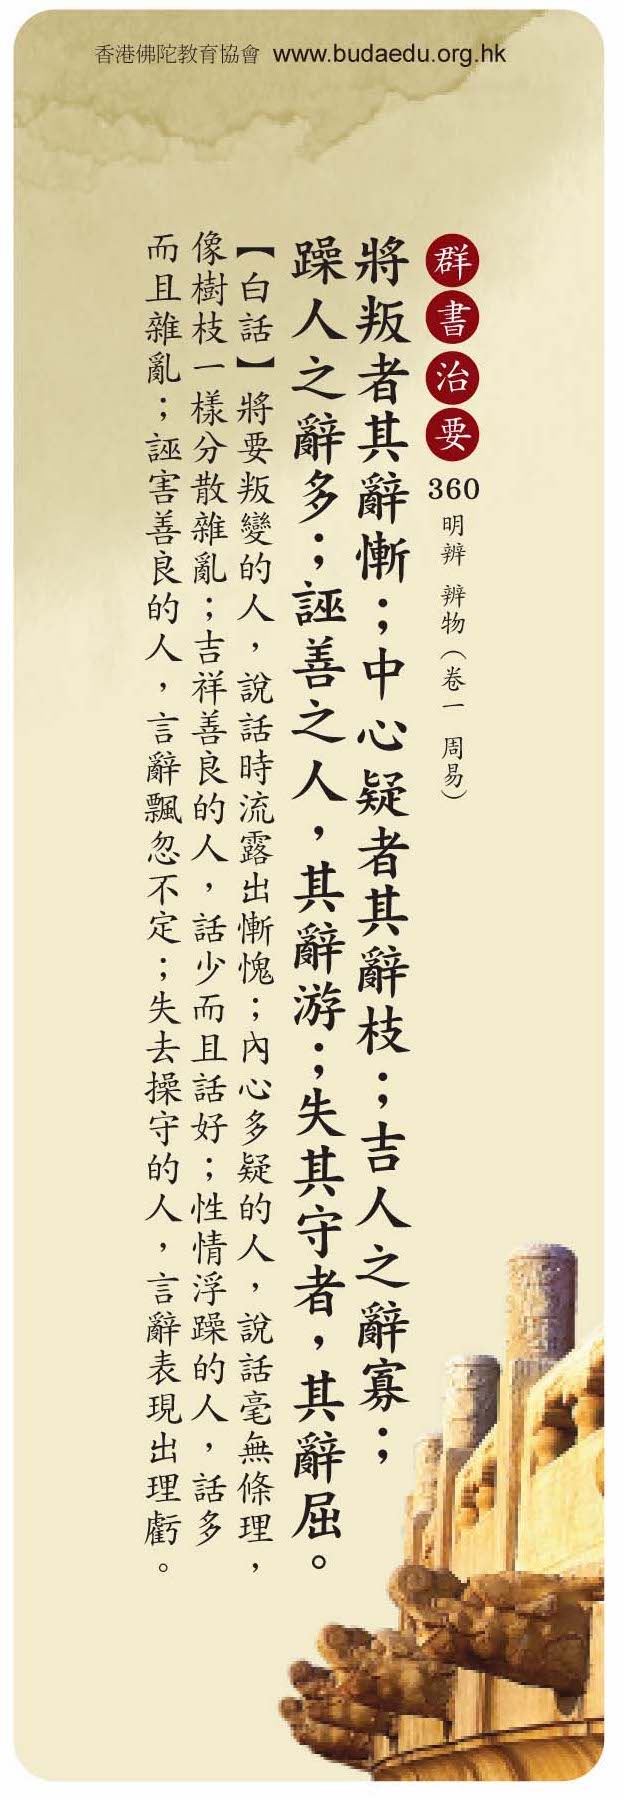 香港佛陀教育協會 www.budaedu.org.hk
群書治要 360 明辨 辨物（卷一 周易）
將叛者其辭慚；中心疑者其辭枝；吉人之辭寡；
躁人之辭多；誣善之人，其辭游；失其守者，其辭屈。
【白話】將要叛變的人，說話時流露出慚愧；內心多疑的人，說話毫無條理，
像樹枝一樣分散雜亂；吉祥善良的人，話少而且話好；性情浮躁的人，話多
而且雜亂；誣害善良的人，言辭飄忽不定；失去操守的人，言辭表現出理虧。